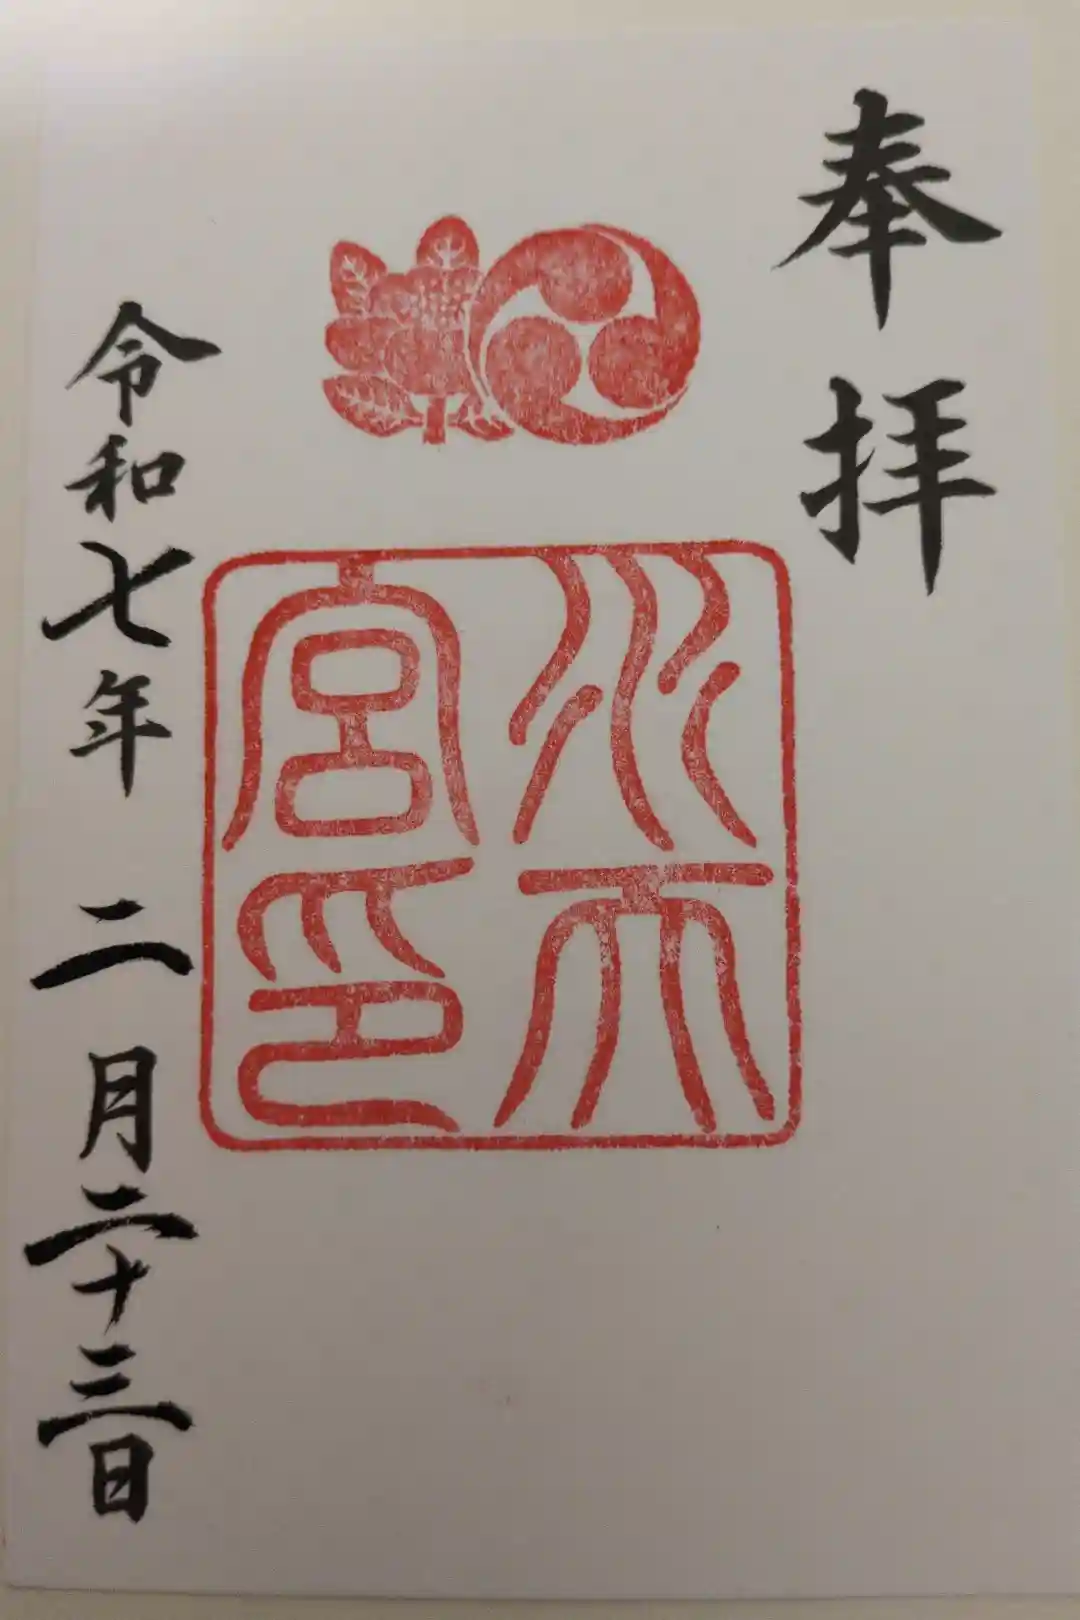 奉拝
水天宮印
令和七年二月二十三日